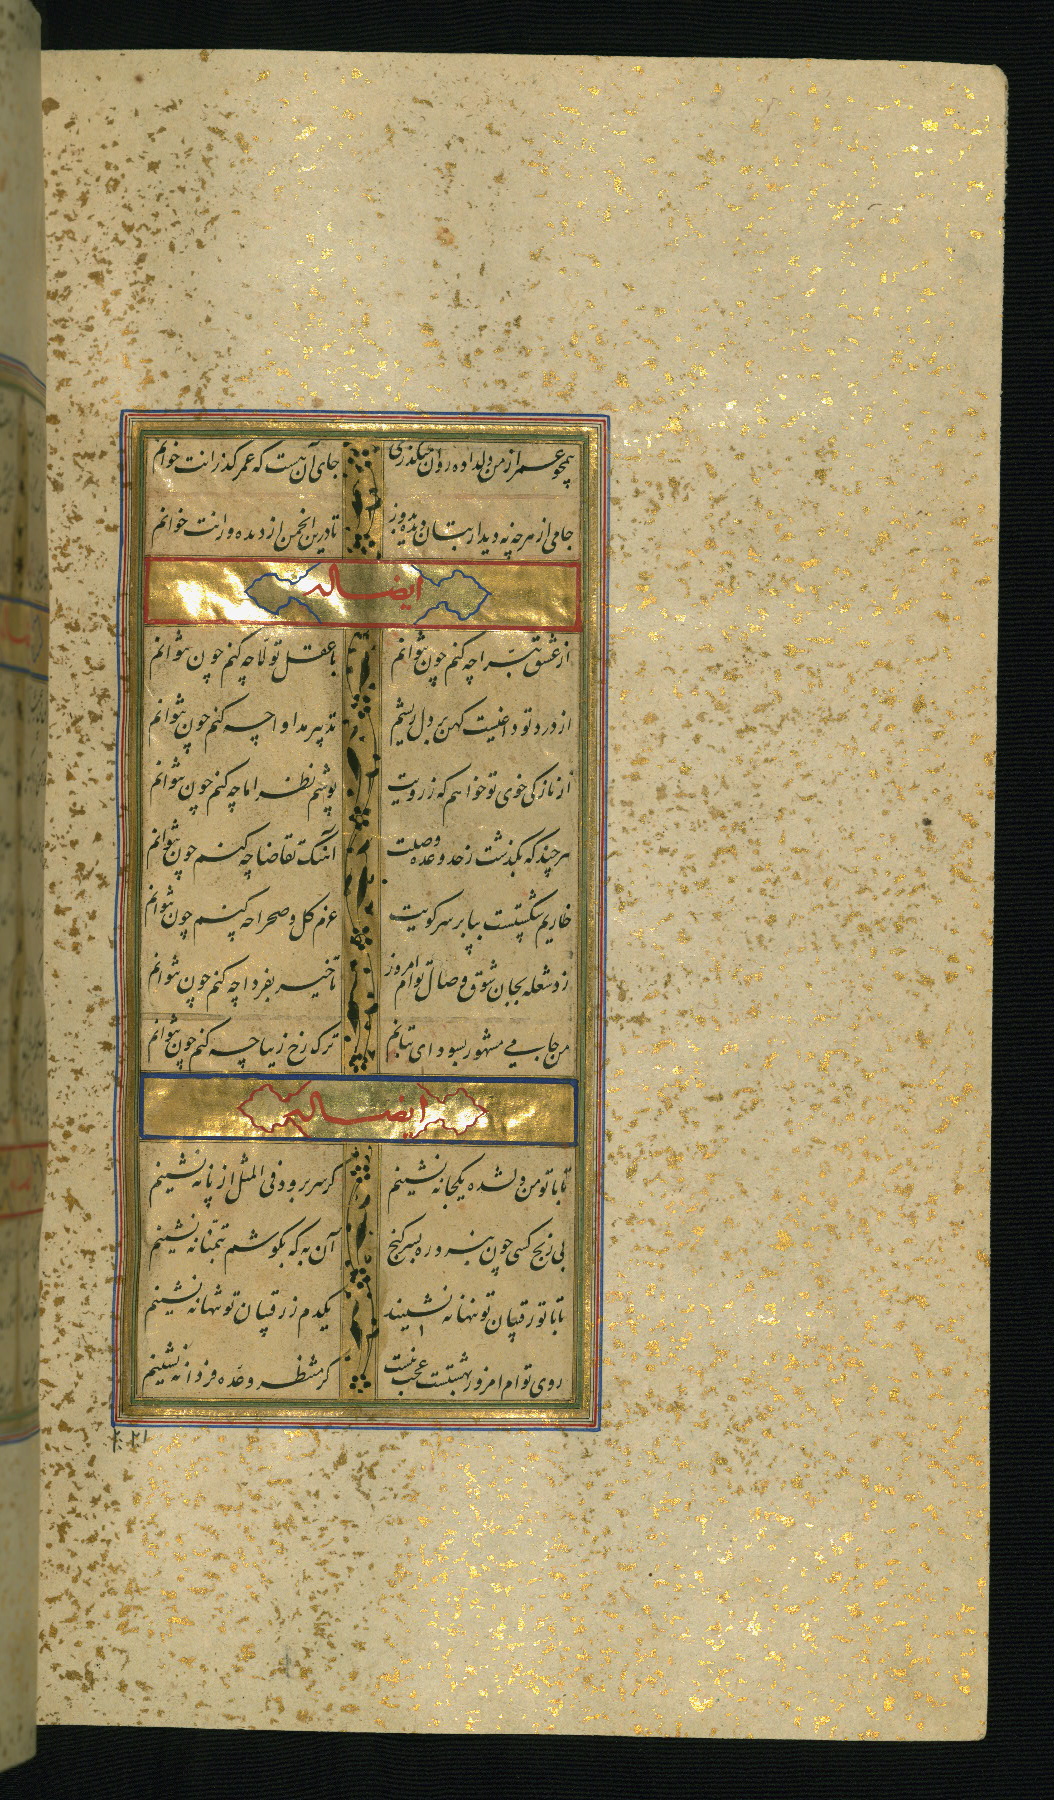 همچو عمر از من دلداده روان میگذری جای آن هست که عمر گذرانت خوانم
جامی از هر چه نه دیدار بتان دیده بدوز تا درین انجمن از دیده ورانت خوانم
ایضاله
از عشق تبرّا چه کنم چون نتوانم با عقل تولا چه کنم چون نتوانم
از درد تو داغیست کهن بر دل ریشم تدبیر مداوا چه کنم چون نتوانم
از نازکی خوی تو خواهم که ز رویت پوشم نظر اما چه کنم چون نتوانم
هر چند که بگذشت ز حد وعده وصلت آهنگ تقاضا چه کنم چون نتوانم
خاریم شکستست بپا بر سر کویت عزم گل و صحرا چه کنم چون نتوانم
زد شعله بجان شوق وصال توام امروز تاخیر بفردا چه کنم چون نتوانم
من جامی مشهور بسودای بتانم ترک رخ زیبا چه کنم چون نتوانم
ایضاله
تا با تو من دلشده یکجا ننشینم گر سر برود فی المثل از پا ننشینم
بی رنج کسی چون نبرد ره بسر گنج آن به که بکوشم بتمنا ننشینم
تا با تو رقیبان تو تنها ننشینند یکدم ز رقیبان تو تنها ننشینم
روی توام امروز بهشتست عجب نیست گر منتظر وعده فردا ننشینم